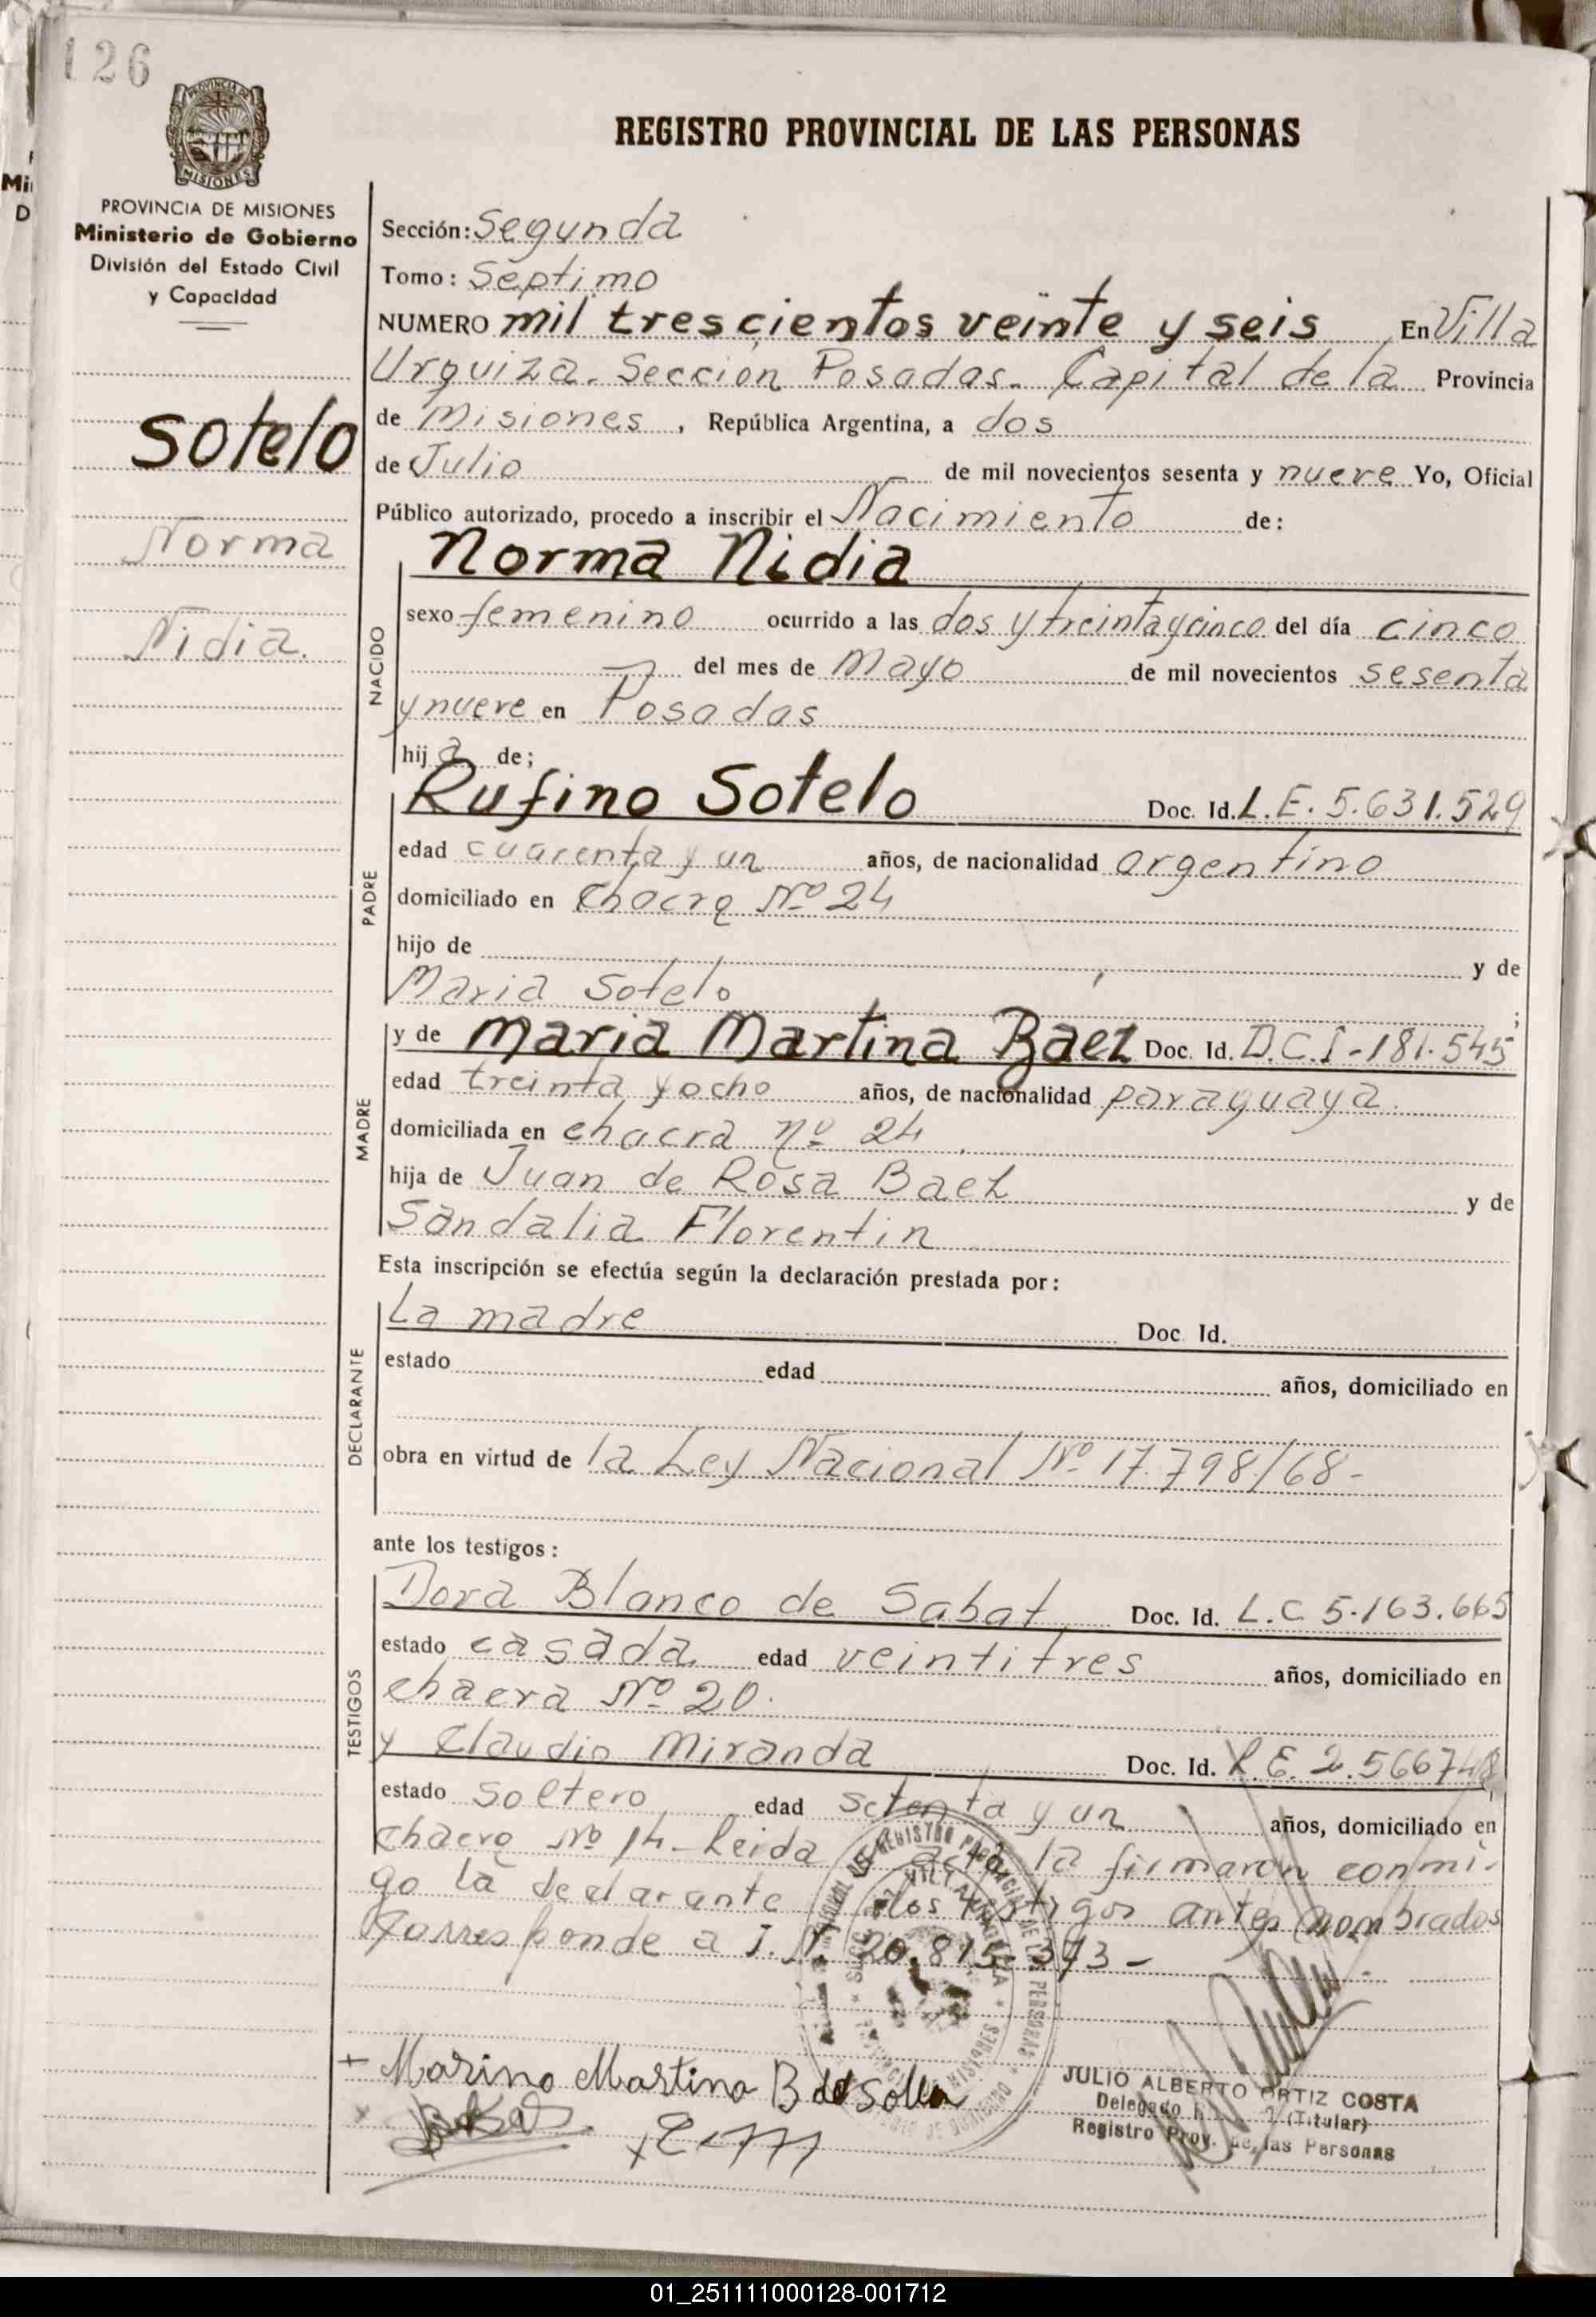 126
PROVINCIA DE MISIONES
Ministerio de Gobierno
División del Estado Civil
y Capacidad
Sotelo
Norma
Nidia.
REGISTRO PROVINCIAL DE LAS PERSONAS
Sección: Segunda
Tomo: Septimo
NUMERO mil trescientos veinte y seis En Villa
Urquiza. Sección Posadas. Capital de la Provincia
de Misiones, República Argentina, a dos
de Julio de mil novecientos sesenta y nueve Yo, Oficial
Público autorizado, procedo a inscribir el Nacimiento de:
NACIDO
Norma Nidia
sexo femenino ocurrido a las dos y treinta y cinco del día cinco
del mes de Mayo de mil novecientos sesenta
y nueve en Posadas
hija de;
PADRE
Rufino Sotelo Doc. Id. L.E. 5.631.529
edad cuarenta y un años, de nacionalidad argentino
domiciliado en Chacra Nº 24
hijo de y de
Maria Sotelo ;
MADRE
y de Maria Martina Baez Doc. Id. D.C.I-181.545
edad treinta y ocho años, de nacionalidad paraguaya.
domiciliada en chacra nº 24
hija de Juan de Rosa Baez y de
Sandalia Florentin
Esta inscripción se efectúa según la declaración prestada por:
DECLARANTE
La madre Doc. Id.
estado edad años, domiciliado en
obra en virtud de la Ley Nacional Nº 17.798/68-
ante los testigos:
TESTIGOS
Dora Blanco de Sabat Doc. Id. L.C 5.163.665
estado casada edad veintitres años, domiciliado en
chacra Nº 20.
y Claudio Miranda Doc. Id. L.E. 2.566748
estado soltero edad setenta y un años, domiciliado en
chacra Nº 14- Leida acta la firmaron conmi-
go la declarante los testigos antes nombrados
Corresponde a I. N 20.815.373-
+ Marino Martina B de Solla
JULIO ALBERTO ORTIZ COSTA
Delegado (Titular)
Registro Prov. de las Personas
01_251111000128-001712